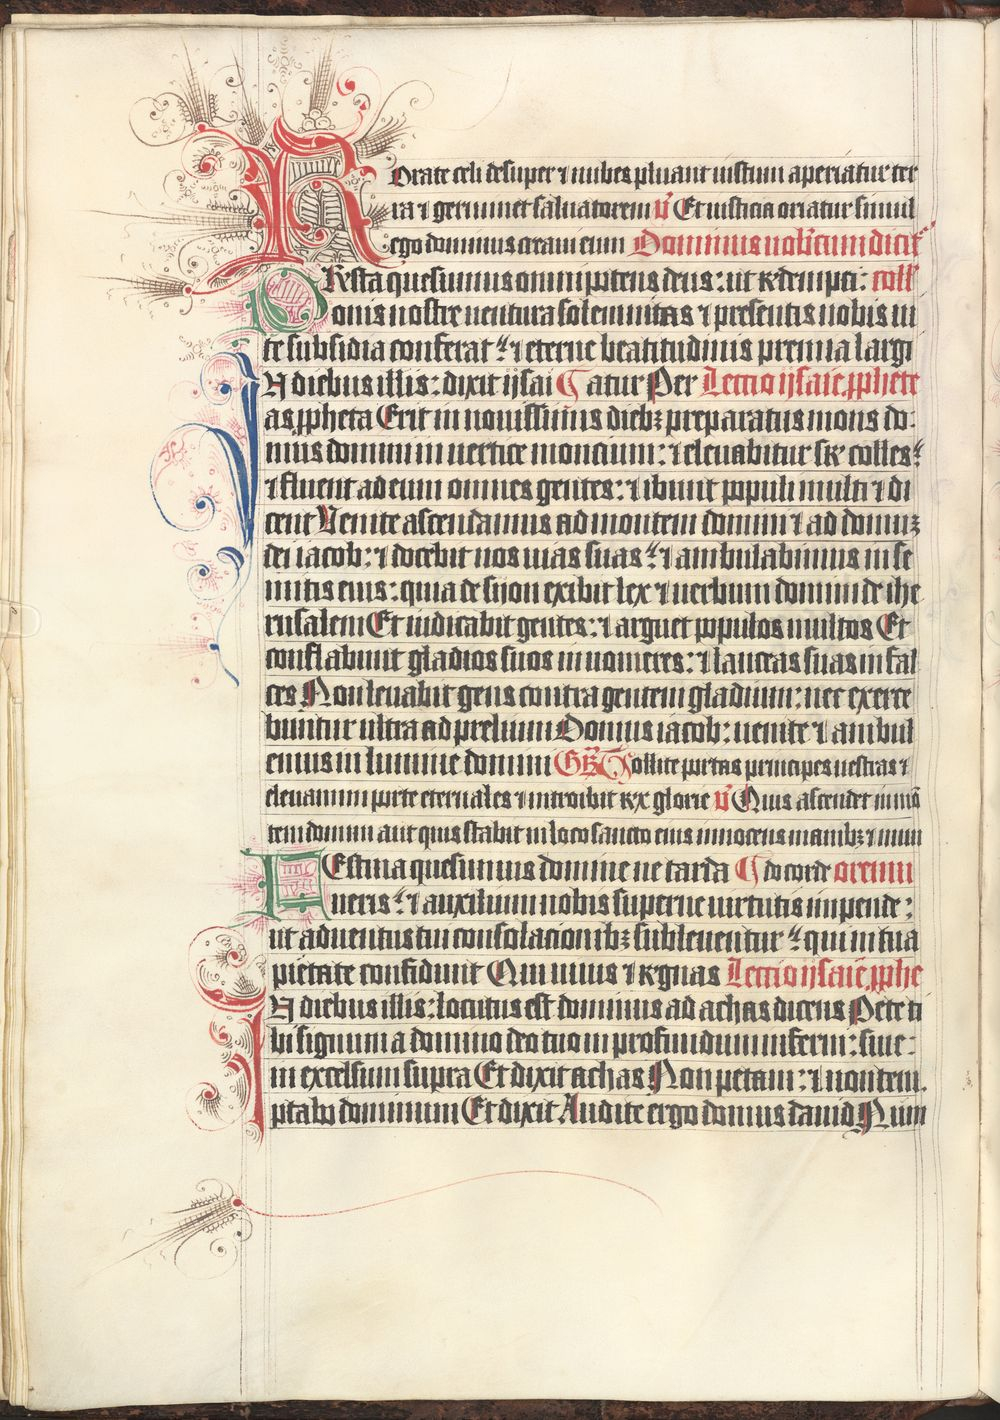 Rorate celi desuper ⁊ nubes pluant iustum aperiatur ter
ra ⁊ germinet saluatorem v̄ Et iusticia oriatur simul
ego dominus creaui eum Dominus uobiscum dicit̉
PResta quesumus omnipotens deus: ut redempti: coll̄
onis nostre uentura solemnitas ⁊ presentis nobis ui
te subsidia conferat: ⁊ eterne beatitudinis premia largi
IN diebus illis: dixit ijsai atur Per Lectio ijsaie ꝓphete
as ꝓpheta Erit in nouissimis diebꝫ preparatus mons do-
mus domini in uertice moncium: ⁊ eleuabitur sr colles:
⁊ fluent ad eum omnes gentes: ⁊ ibunt populi multi ⁊ di
cent Uenite ascendamus ad montem domini ⁊ ad domuꝫ
dei iacob: ⁊ docebit nos uias suas: ⁊ ambulabimus in se
mitis eius: quia de sijon exibit lex ⁊ uerbum domini de ihe
rusalem Et iudicabit gentes: ⁊ arguet populos multos Et
conflabunt gladios suos in uomeres: ⁊ lanceas suas in fal
ces Non leuabit gens contra gentem gladium: nec exerce
buntur ultra ad prelium Domus iacob: uenite ⁊ ambul
emus in lumine domini GR̄ Tollite portas principes uestras ⁊
eleuamini porte eternales ⁊ introibit rex glorie v̄ Quis ascendet in mō
tem domini aut quis stabit in loco sancto eius innocens manibꝫ ⁊ mun
FEstina quesumus domine ne tarda do corde oremu
ueris: ⁊ auxilium nobis superne uirtutis impende:
ut aduentus tui consolacionibꝫ subleuentur: qui in tua
pietate confidunt Qui uiuis ⁊ regnas Lectio ijsaie ꝓphe
IN diebus illis: locutus est dominus ad achas dicens Pete ti
bi signum a domino deo tuo in profundum inferni: siue:
in excelsum supra Et dixit achas Non petam: ⁊ non tem
ptabo dominum Et dixit Audite ergo domus dauid Num